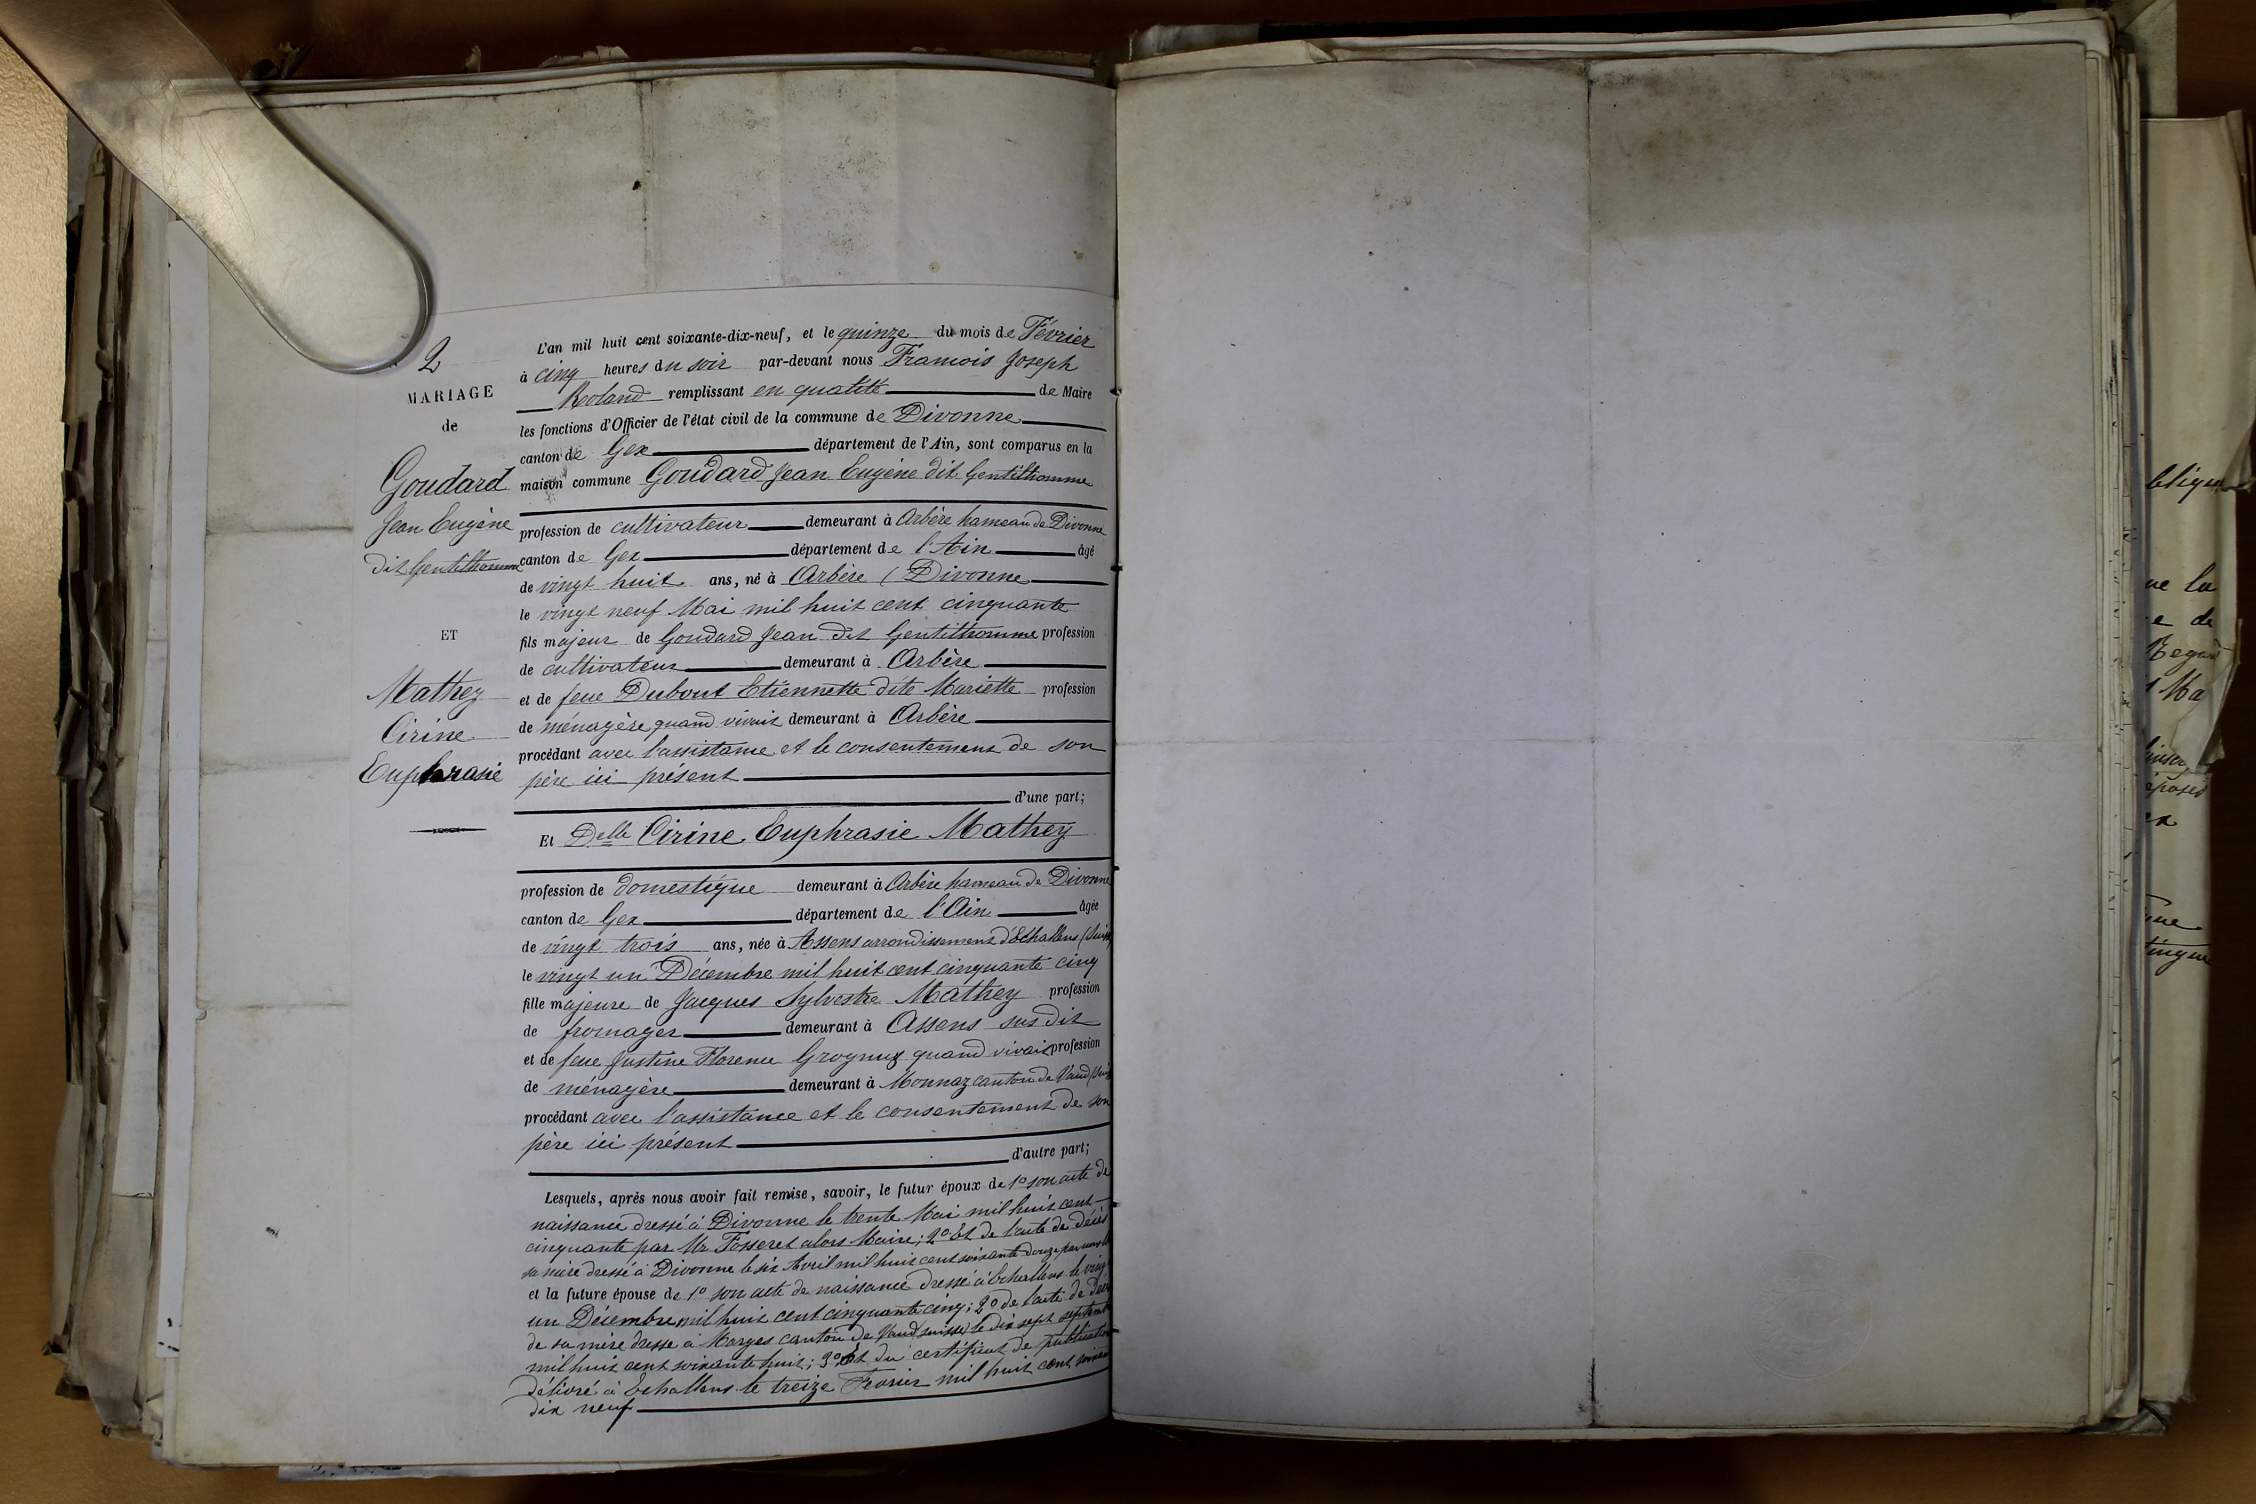 2
MARIAGE
de
Goudard
Jean Eugène
dit Gentilhomme
ET
Mathey
Cirine
Euphrasie
L'an mil huit cent soixante-dix-neuf, et le quinze du mois de Février
à cinq heures du soir par-devant nous François Joseph
Roland remplissant en qualité de Maire
les fonctions d'Officier de l'état civil de la commune de Divonne
canton de Gex département de l'Ain, sont comparus en la
maison commune Goudard Jean Eugène dit Gentilhomme
profession de cultivateur demeurant à Arbère hameau de Divonne
canton de Gex département de l'Ain âgé
de vingt huit ans, né à Arbère (Divonne
le vingt neuf Mai mil huit cent cinquante
fils majeur de Goudard Jean dit Gentilhomme profession
de cultivateur demeurant à Arbère
et de feue Dubout Etiennette dite Mariette profession
de ménagère quand vivait demeurant à Arbère
procédant avec l'assistance et le consentement de son
père ici présent
d'une part;
Et Delle Cirine Euphrasie Mathey
profession de domestique demeurant à Arbère hameau de Divonne
canton de Gex département de l'Ain âgée
de vingt trois ans, née à Assens arrondissement d'Echallens (Suisse
le vingt un Décembre mil huit cent cinquante cinq
fille majeure de Jacques Sylvestre Mathey profession
de fromager demeurant à Assens sus dit
et de feue Justine Florence Grognuz quand vivait profession
de ménagère demeurant à Monnaz canton de Vaud (Suis
procédant avec l'assistance et le consentement de son
père ici présent
d'autre part;
Lesquels, après nous avoir fait remise, savoir, le futur époux de 1° son acte de
naissance dressé à Divonne le trente Mai mil huit cent
cinquante par Mr Fosseret alors Maire; 2° Et de l'acte de décès
sa mère dressé à Divonne le six Avril mil huit cent soixante douze par nous
et la future épouse de 1° son acte de naissance dressé à Echallens le vingt
un Décembre mil huit cent cinquante cinq; 2° de l'acte de décès
de sa mère dressé à Morges canton de Vaud (suisse) le dix sept septemb
mil huit cent soixante huit; 3° Et du certificat de publication
délivré à Echallens le treize Février mil huit cent soixan
dix neuf
ue la
e de
Ma